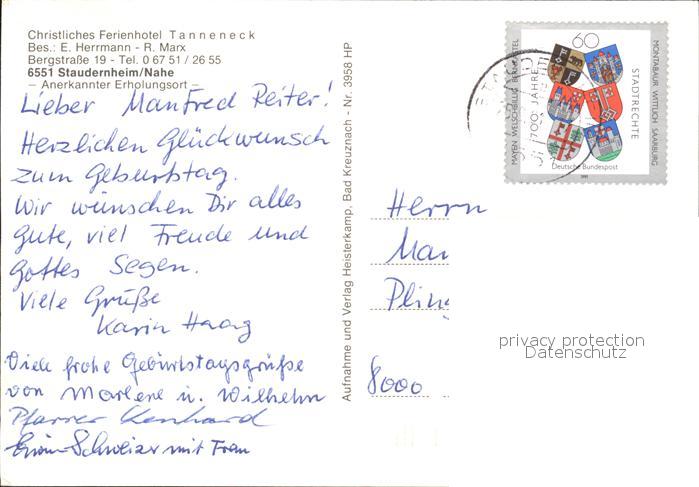 Christliches Ferienhotel Tanneneck
Bes.: E. Herrmann - R. Marx
Bergstraße 19 - Tel. 0 67 51 / 26 55
6551 Staudernheim/Nahe
– Anerkannter Erholungsort –
Lieber Manfred Reiter!
Herzlichen Glückwunsch
zum Geburtstag.
Wir wünschen Dir alles
Gute, viel Freude und
Gottes Segen.
Viele Grüße
Karin Haag
Viele frohe Geburtstagsgrüße
von Marlene u. Wilhelm
Pfarrer
Schweizer mit Frau
Aufnahme und Verlag Heisterkamp, Bad Kreuznach - Nr. 3958 HP
60
MAYEN WELSCHBILLIG BERNKASTEL
700 JAHRE
STADTRECHTE
MONTABAUR WITTLICH SAARBURG
Deutsche Bundespost
1991
Herrn
Man
Pling
8000
privacy protection
Datenschutz